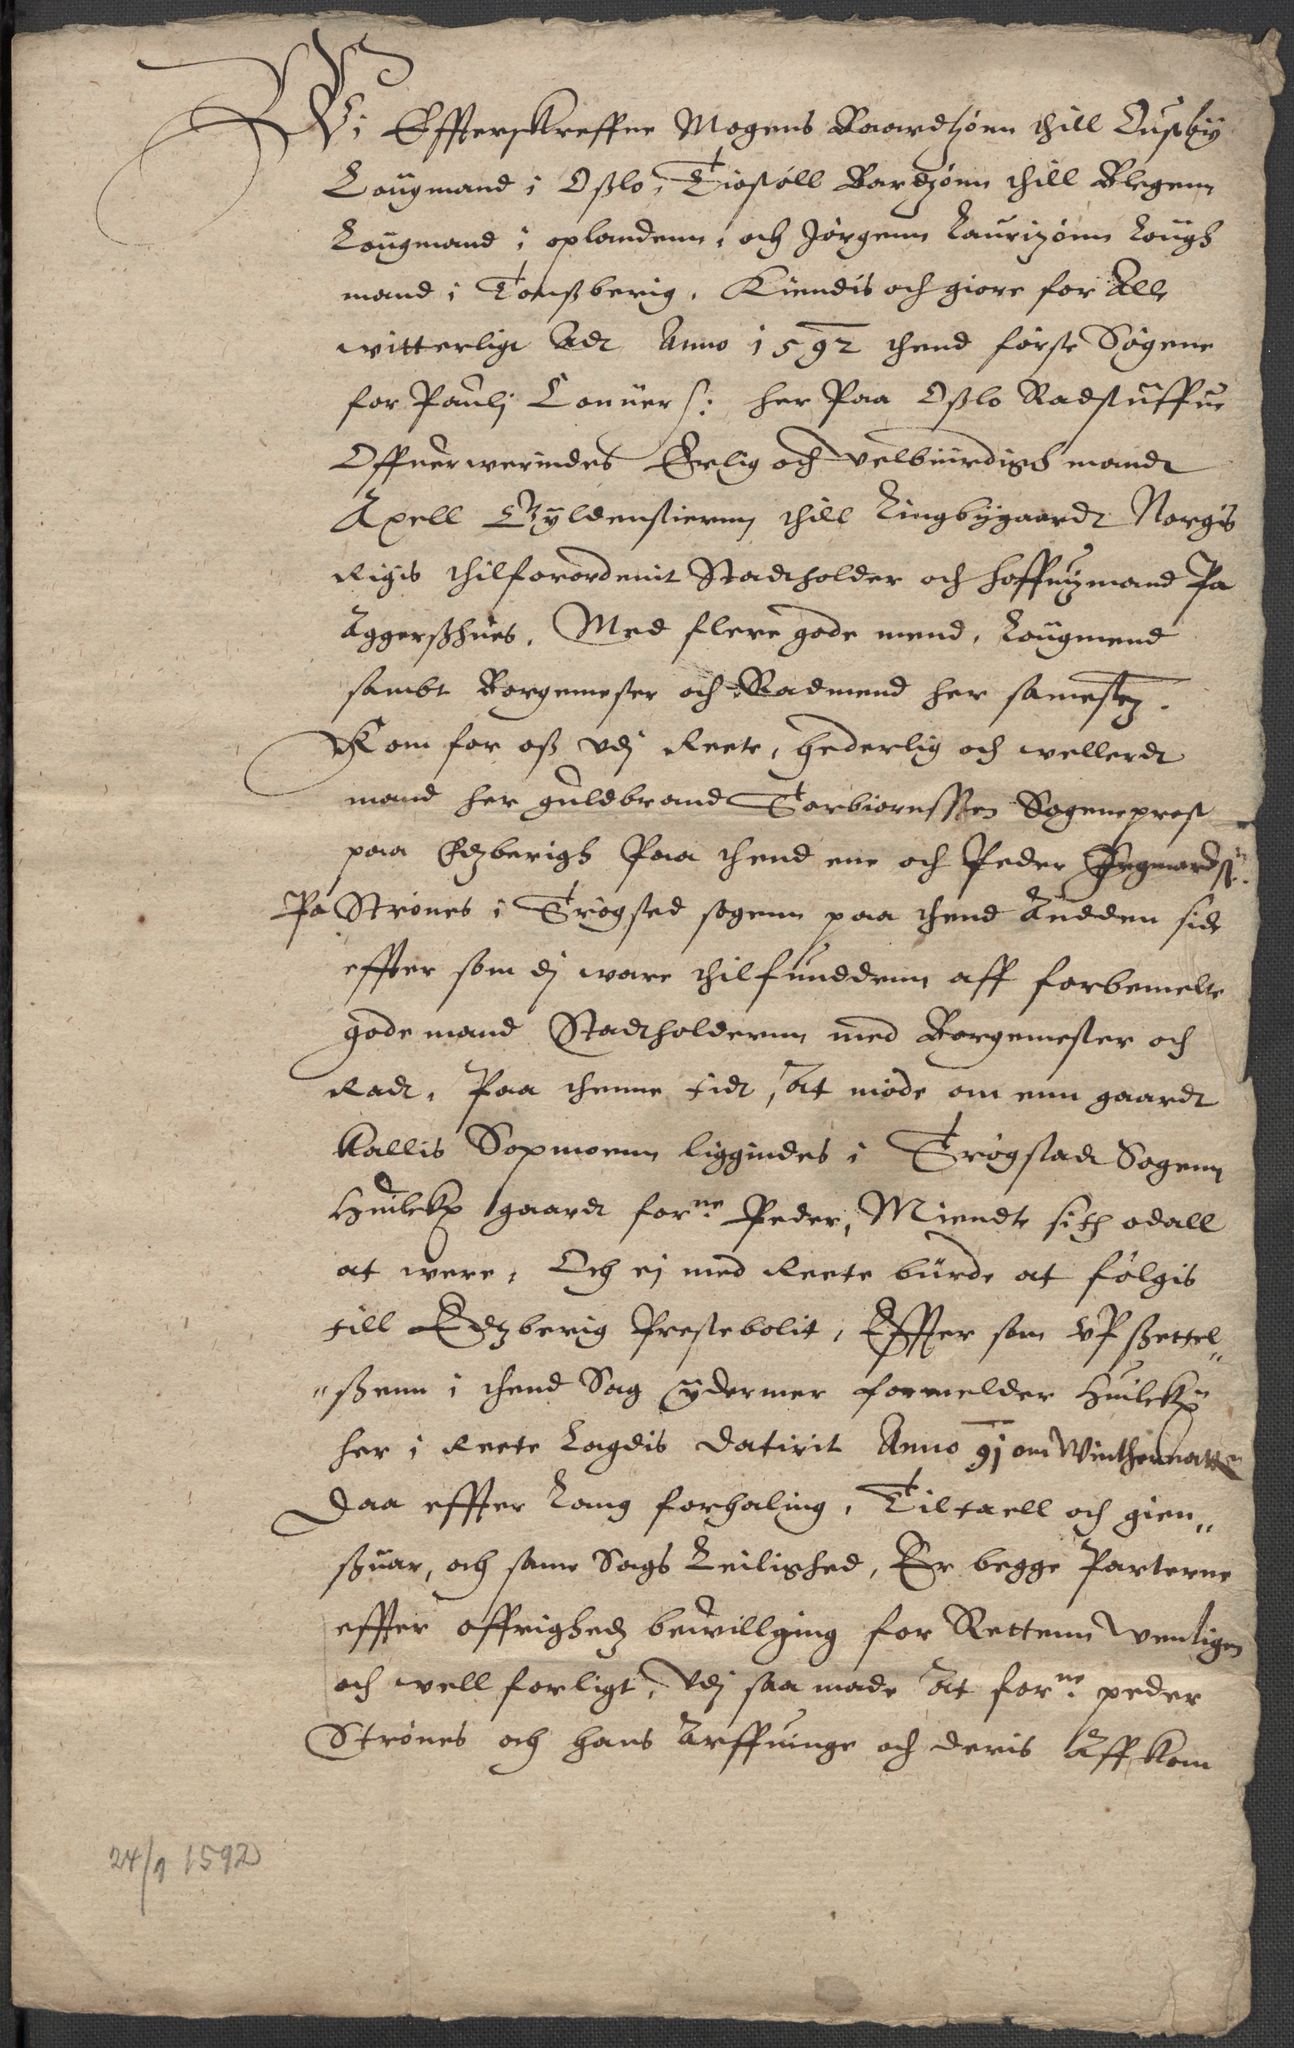 Wi Effterskreffne Mogens Baardtzønn thill Ousby
Lougmand i Oßlo, Tiostøll Bardzønn thill Blegenn
Lougmand i oplandenn, och Jørgenn Lauritzønn Lough
mand i Tonßberig, Kiendis och giøre for Alle
witterligt Adt Anno 1592 thend første Søgene
for Paulj Conuers: her Paa Oßlo Radstuffue
Offuerwerindes Erlig och velbiurdigh mandt
Axell Gyldenstiernn thill Lingbygaardt Norgis
Rigis thilforordenit Stadtholder och høffuizmand Pa
Aggerßhues, Med flere gode mend, Lougmend
sambt Borgemester och Radmend her samestez.
Kom for oß vdj Rette, hederlig och wellerdt
mand her guldbrand Torbiørnssøn Sogeneprest
paa Edzbergh Paa thend ene och Peder
Pa Strønes i Trøgsted sogenn paa thend Andden side
effter som dj ware thilfunddenn aff forbemelte
gode mand Stadtholdernn med Borgemester och
Radt, Paa thenne tidt, At møde om enn gaardt
kallis Sopmoenn liggindes i Trøgstadt Sogenn
Huilckenn gaardt forne Peder, Miendte sith odall
at were, Och ej med Rette burde at følgis
till Edzberig Prestebolit, Effter som vPsettel„
„ßenn i thend Sag ydermer formelder Huilckenn
her i Rette Lagdis datirit Anno 91 om Winthernatt
Daa effter Lang forhaling, Tiltaell och gien„
ßuar, och same Sags Leilighed, Er begge Parterne
effter øffrigheds bewillging for Rettenn wenligen
och well forligt, vdj saa made At forne peder
Strønes och hans Arffuinge och deris Affkom
24/1 1592